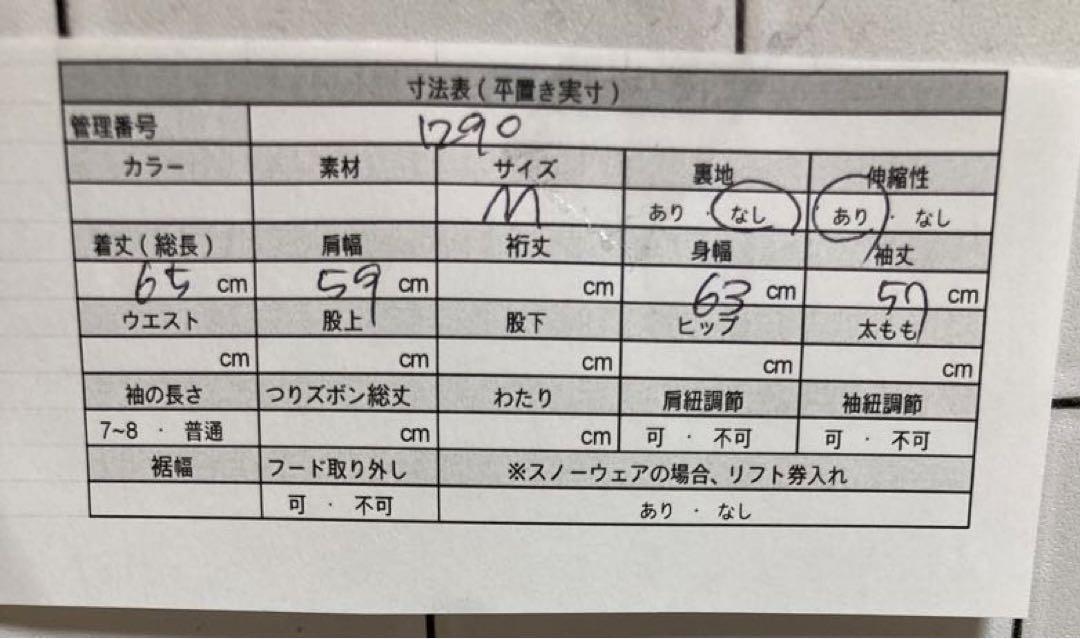 寸法表(平置き実寸)
管理番号 1290
カラー 素材 サイズ 裏地 伸縮性
M あり ・ なし あり ・ なし
着丈(総長) 肩幅 裄丈 身幅 袖丈
65 cm 59 cm cm 63 cm 57 cm
ウエスト 股上 股下 ヒップ 太もも
cm cm cm cm cm
袖の長さ つりズボン総丈 わたり 肩紐調節 袖紐調節
7~8 ・ 普通 cm cm 可 ・ 不可 可 ・ 不可
裾幅 フード取り外し ※スノーウェアの場合、リフト券入れ
可 ・ 不可 あり ・ なし